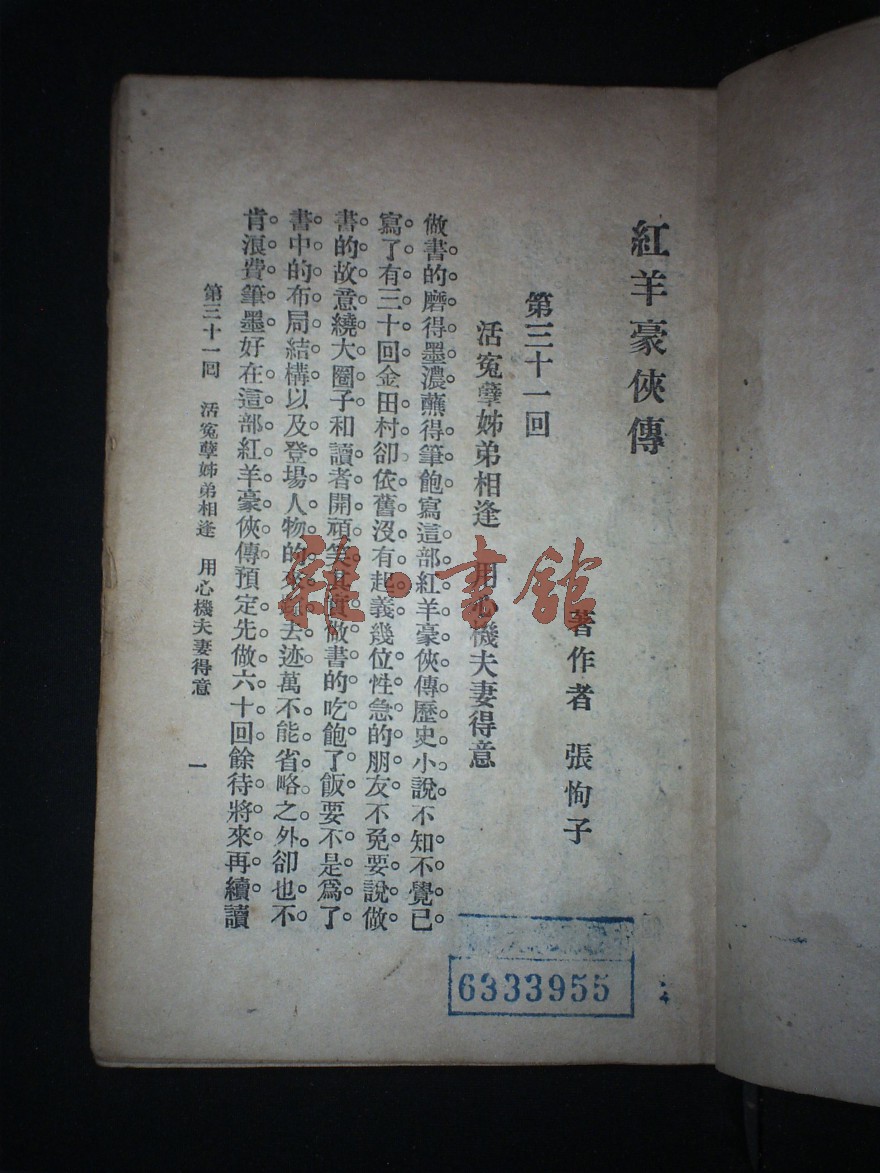 紅羊豪俠傳
著作者 張恂子
第三十一回
活冤孽姊弟相逢 用心機夫妻得意
做書的磨得墨濃蘸得筆飽寫這部紅羊豪俠傳歷史小說不知不覺已
寫了有三十回金田村卻依舊沒有起義幾位性急的朋友不免要說做
書的故意繞大圈子和讀者開頑笑其實做書的吃飽了飯要不是爲了
書中的布局結構以及登場人物的來蹤去迹萬不能省略之外卻也不
肯浪費筆墨好在這部紅羊豪俠傳預定先做六十回餘待將來再續讀
第三十一回 活冤孽姊弟相逢 用心機夫妻得意
一
6333955
雜·書館